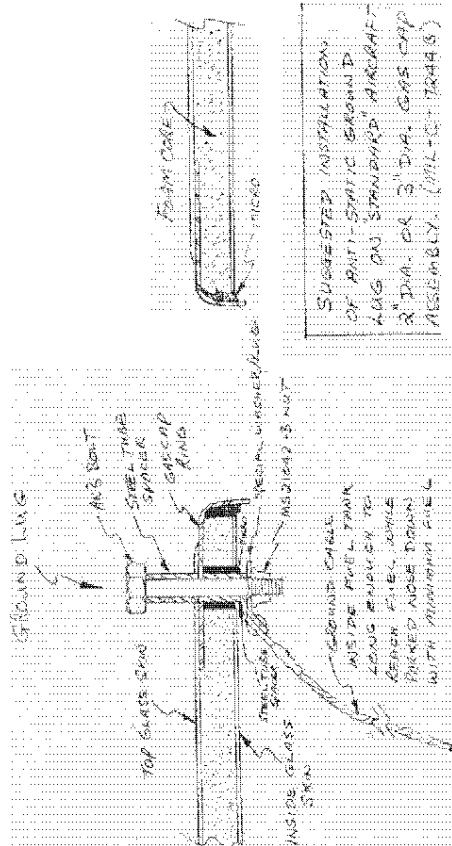 GROUND LUG
AN3 BOLT
STEEL TUBE
SPACER
GAS CAP
RING
TOP GLASS SKIN
INSIDE GLASS
SKIN
STEEL TUBE
SPACER
METAL WASHER
MS21042-3 NUT
GROUND CABLE
INSIDE FUEL TANK
LONG ENOUGH TO
REACH FUEL WHILE
PARKED NOSE DOWN
WITH MINIMUM FUEL
FOAM CORE
MICRO
SUGGESTED INSTALLATION
OF ANTI-STATIC GROUND
LUG ON "STANDARD" AIRCRAFT
2" DIA. OR 3" DIA. GAS CAP
ASSEMBLY.